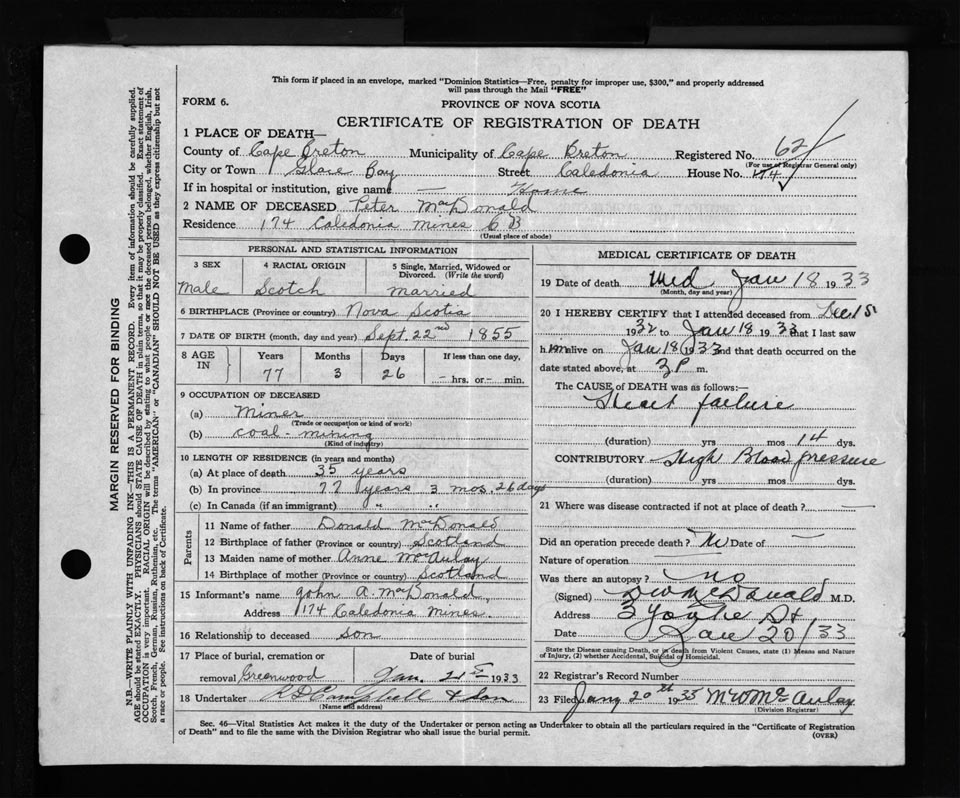 This form if placed in an envelope, marked "Dominion Statistics—Free, penalty for improper use, $300," and properly addressed
will pass through the Mail "FREE"
FORM 6.
PROVINCE OF NOVA SCOTIA
CERTIFICATE OF REGISTRATION OF DEATH
1 PLACE OF DEATH—
County of Cape Breton Municipality of Cape Breton Registered No. 62
(For use of Registrar General only)
City or Town Glace Bay Street Caledonia House No. 174
If in hospital or institution, give name — Home
2 NAME OF DECEASED Peter MacDonald
Residence 174 Caledonia Mines C B
(Usual place of abode)
PERSONAL AND STATISTICAL INFORMATION
3 SEX 4 RACIAL ORIGIN 5 Single, Married, Widowed or Divorced. (Write the word)
Male Scotch married
6 BIRTHPLACE (Province or country) Nova Scotia
7 DATE OF BIRTH (month, day and year) Sept. 22nd 1855
8 AGE IN Years Months Days If less than one day,
77 3 26 — hrs. or — min.
9 OCCUPATION OF DECEASED
(a) Miner
(Trade or occupation or kind of work)
(b) coal-mining
(Kind of industry)
10 LENGTH OF RESIDENCE (in years and months)
(a) At place of death 35 years
(b) In province 77 years 3 mos. 26 days
(c) In Canada (if an immigrant) " "
Parents
11 Name of father Donald MacDonald
12 Birthplace of father (Province or country) Scotland
13 Maiden name of mother Anne MacAulay
14 Birthplace of mother (Province or country) Scotland
15 Informant's name John A. MacDonald,
Address 174 Caledonia Mines.
16 Relationship to deceased son
17 Place of burial, cremation or removal Greenwood Date of burial Jan. 21st 1933
18 Undertaker Campbell & Son
(Name and address)
MEDICAL CERTIFICATE OF DEATH
19 Date of death Wed Jan 18 1933
(Month, day and year)
20 I HEREBY CERTIFY that I attended deceased from Dec 15
1932 to Jan 18 1933 that I last saw
him alive on Jan 18 1933 and that death occurred on the
date stated above, at 3 P m.
The CAUSE of DEATH was as follows:—
Heart failure
(duration) yrs mos 14 dys.
CONTRIBUTORY High Blood pressure
(duration) yrs mos dys.
21 Where was disease contracted if not at place of death? —
Did an operation precede death? Date of —
Nature of operation —
Was there an autopsy? no
(Signed) McDonald M.D.
Address 3 St
Date Jan 20/33
State the Disease causing Death, or in death from Violent Causes, state (1) Means and Nature
of Injury, (2) whether Accidental, Suicidal or Homicidal.
22 Registrar's Record Number
23 Filed Jany 20th 1933 McAulay
(Division Registrar)
Sec. 46—Vital Statistics Act makes it the duty of the Undertaker or person acting as Undertaker to obtain all the particulars required in the "Certificate of Registration
of Death" and to file the same with the Division Registrar who shall issue the burial permit.
(OVER)
MARGIN RESERVED FOR BINDING
N.B.—WRITE PLAINLY WITH UNFADING INK—THIS IS A PERMANENT RECORD. Every item of information should be carefully supplied.
AGE should be stated EXACTLY. PHYSICIANS should STATE CAUSE OF DEATH in plain terms, so that it may be properly classified. Exact statement of
OCCUPATION is very important. RACIAL ORIGIN will be described by stating to what people or race the deceased person belonged, whether English, Irish,
Scotch, French, German, Russian, Ruthenian, etc. The terms "AMERICAN" or "CANADIAN" SHOULD NOT BE USED as they express citizenship but not
a race or people. See instructions on back of Certificate.